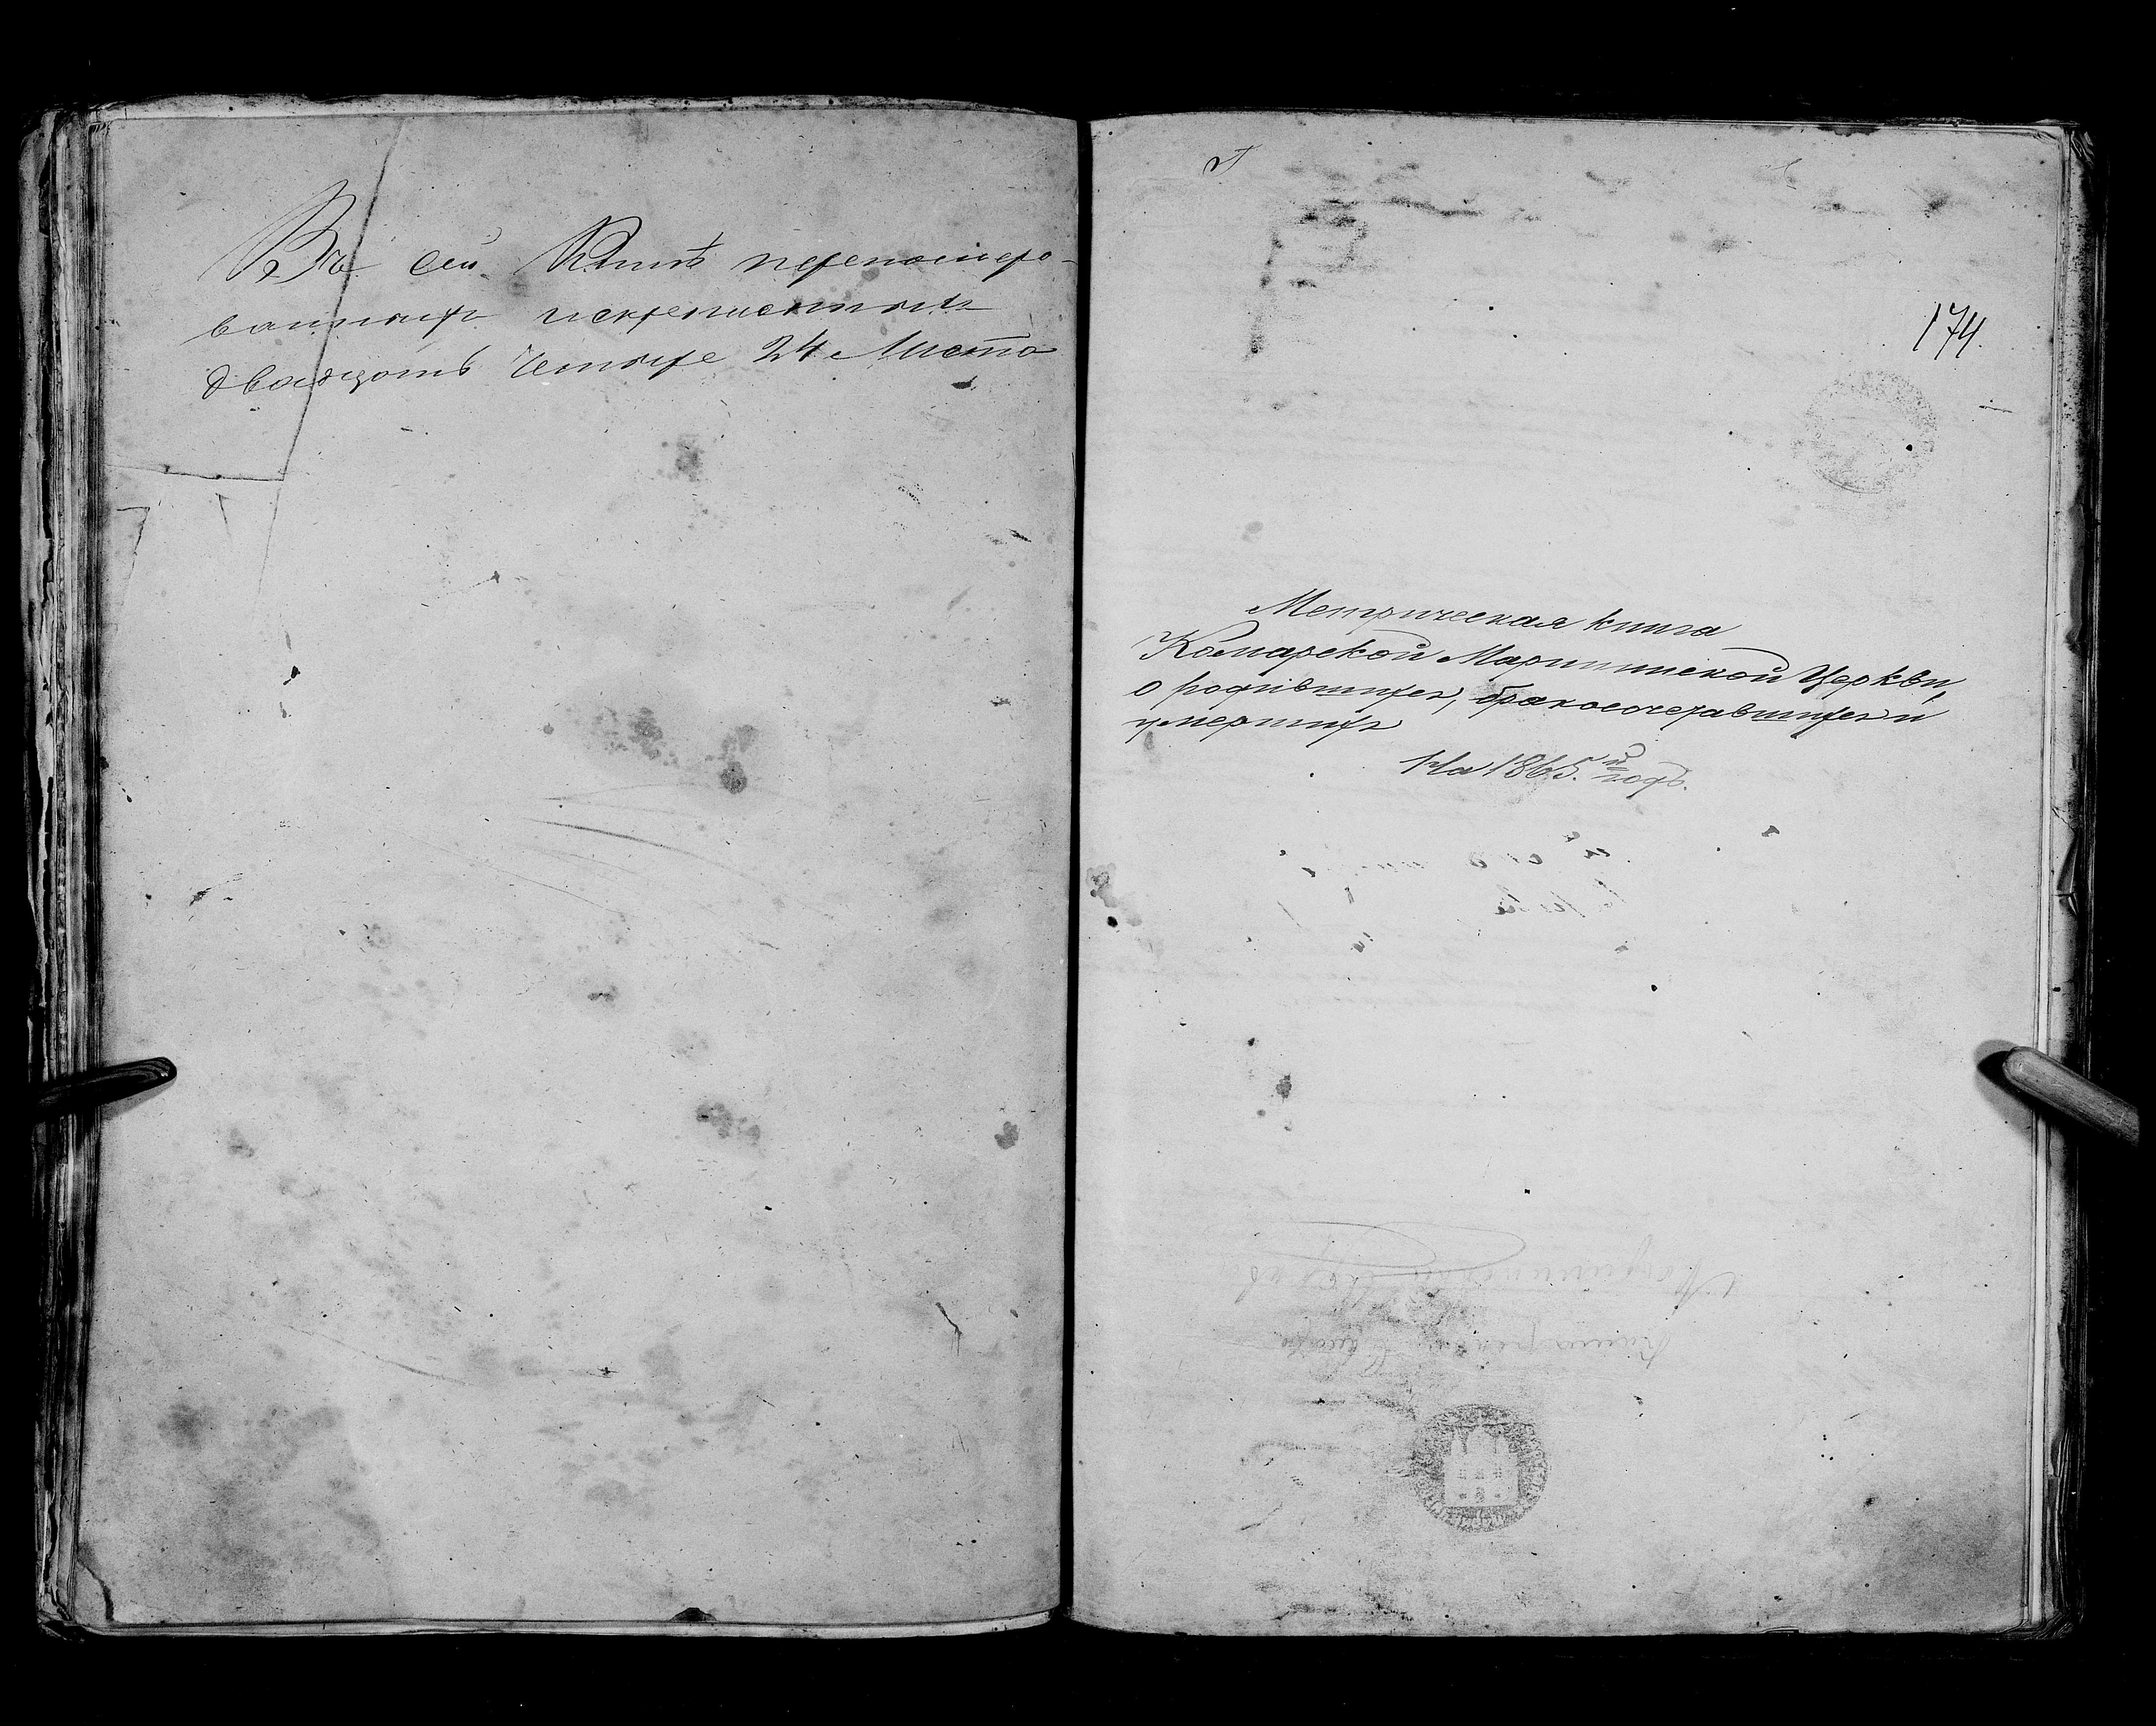 Въ сей Книгѣ перенумеро-
ванныхъ и скрепленныхъ
двадцать четыре 24 Листа
174.
Метрическая книга
Комарской Мариинской Церкви,
о родившихся, бракосочетавшихся и
умершихъ
На 1865.й годъ.